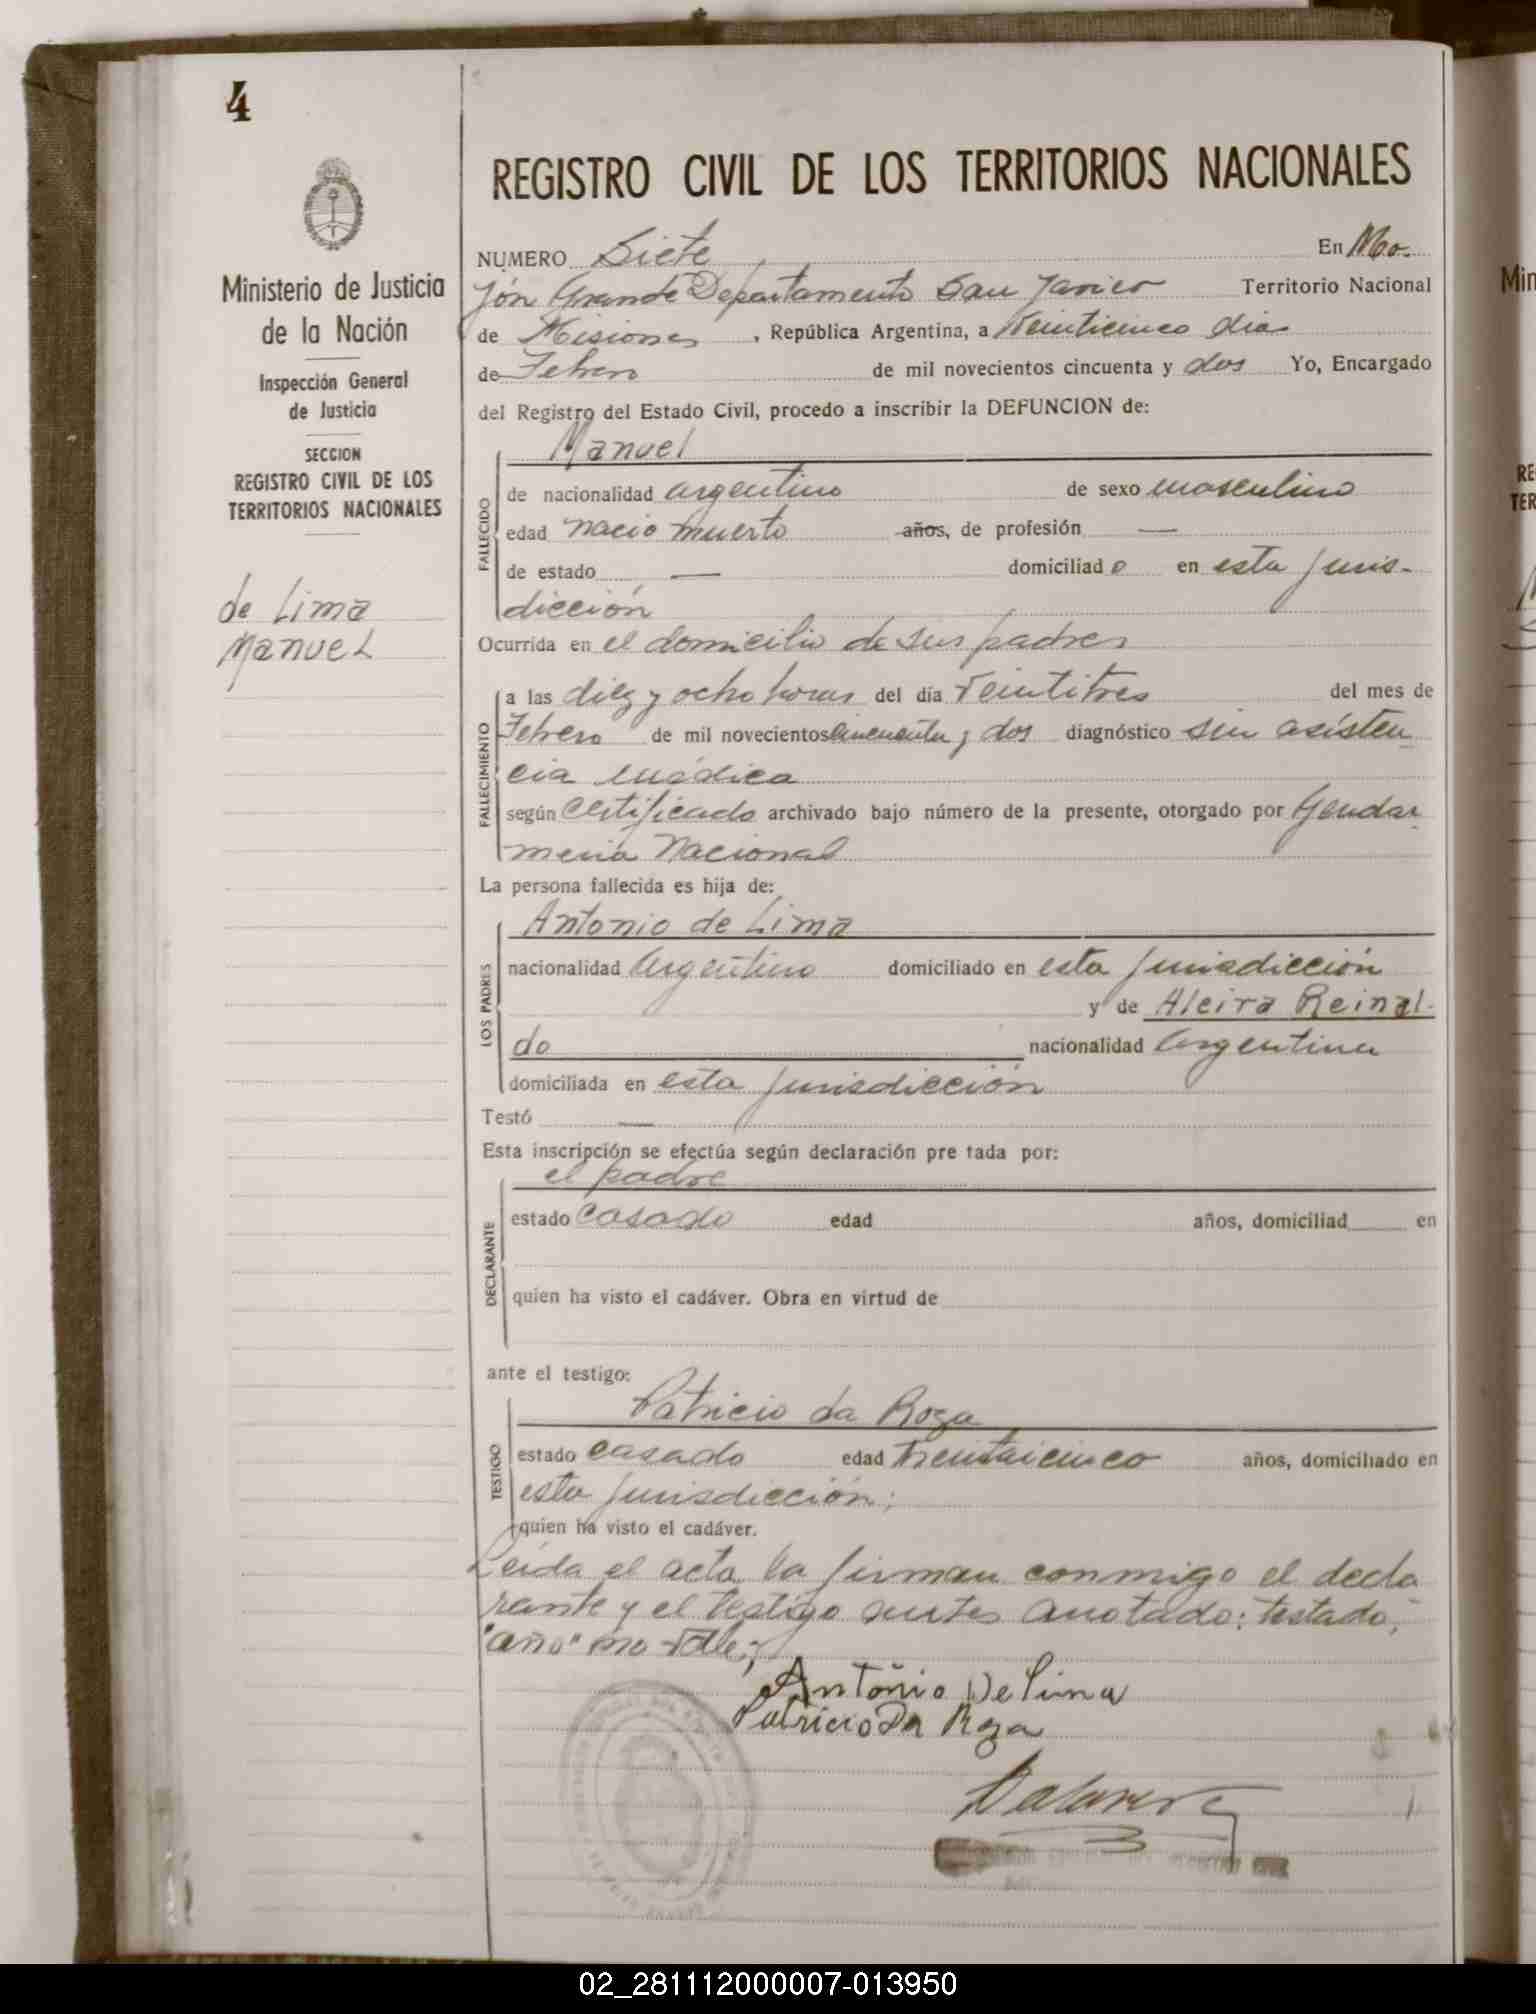 4
REGISTRO CIVIL DE LOS TERRITORIOS NACIONALES
Ministerio de Justicia
de la Nación
Inspección General
de Justicia
SECCION
REGISTRO CIVIL DE LOS
TERRITORIOS NACIONALES
de Lima
Manuel
NUMERO Siete En Mo-
jón Grande Departamento San Javier Territorio Nacional
de Misiones, República Argentina, a Veinticinco dias
de Febrero de mil novecientos cincuenta y dos Yo, Encargado
del Registro del Estado Civil, procedo a inscribir la DEFUNCION de:
FALLECIDO
Manuel
de nacionalidad argentino de sexo masculino
edad nació muerto años, de profesión —
de estado — domiciliado en esta juris-
dicción
Ocurrida en el domicilio de sus padres
FALLECIMIENTO
a las diez y ocho horas del día Veintitres del mes de
Febrero de mil novecientos cincuenta y dos diagnóstico sin asísten
cia médica
según certificado archivado bajo número de la presente, otorgado por Gendar
meria Nacional
La persona fallecida es hija de:
LOS PADRES
Antonio de Lima
nacionalidad Argentino domiciliado en esta jurisdicción
y de Alcira Reinal-
do nacionalidad Argentina
domiciliada en esta jurisdicción
Testó —
Esta inscripción se efectúa según declaración pre tada por:
DECLARANTE
el padre
estado casado edad años, domiciliad en
quien ha visto el cadáver. Obra en virtud de
ante el testigo:
TESTIGO
Patricio da Roza
estado casado edad treintaicinco años, domiciliado en
esta jurisdicción;
quien ha visto el cadáver.
Leída el acta la firman conmigo el decla
rante y el testigo antes anotado: testado;
"año" no vale;
Antoñio De Lima
Patricio Da Roza
02_281112000007-013950